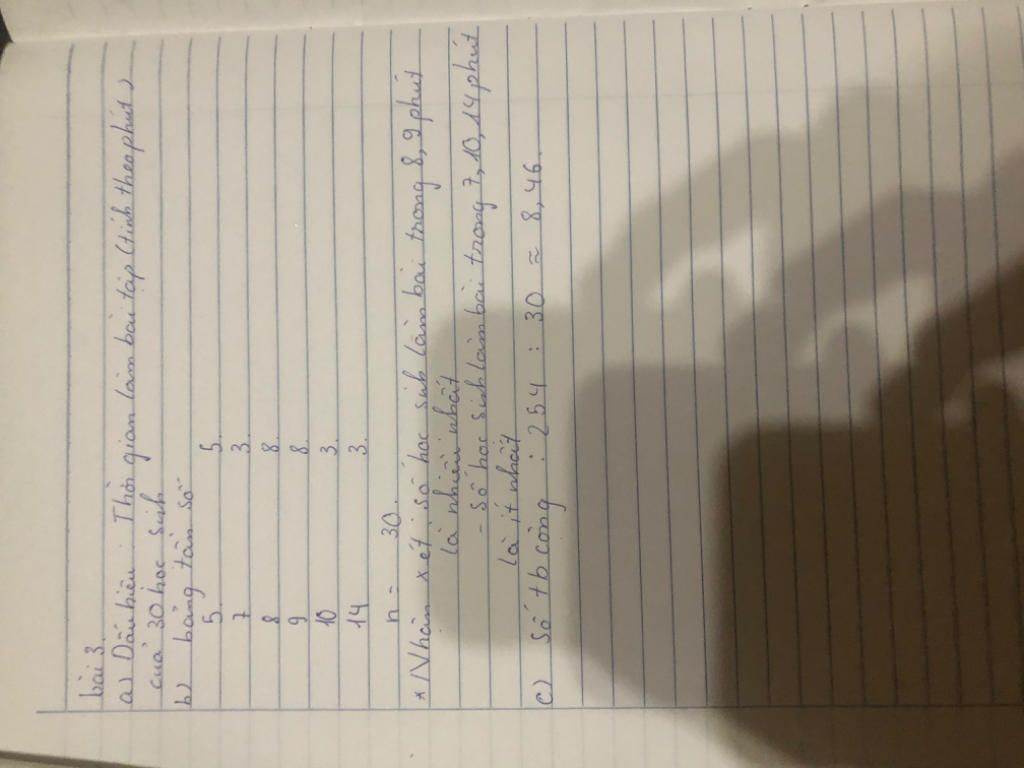 bài 3.
a) Dấu hiệu : Thời gian làm bài tập (tính theo phút)
của 30 học sinh
b) bảng tần số
5. 5.
7 3.
8 8.
9 8.
10 3.
14 3.
n = 30.
* Nhận xét : số học sinh làm bài trong 8, 9 phút
là nhiều nhất
- số học sinh làm bài trong 7, 10, 14 phút
là ít nhất
c) Số tb cộng : 254 : 30 ≈ 8,46.